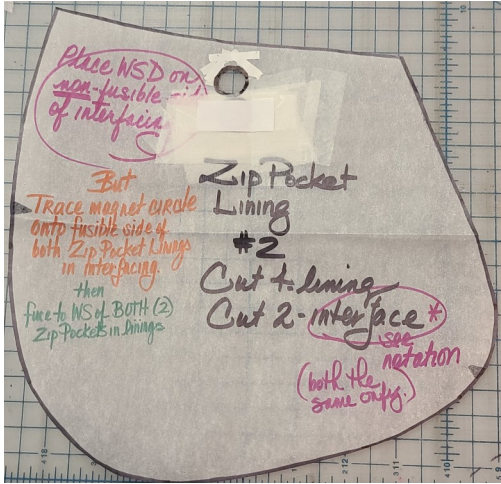 Place WSD on
non-fusible
of interfacing
But
Trace magnet
onto fusible side of
both Zip Pocket Linings
in interfacing.
then
fuse to WS of BOTH (2)
Zip Pockets in linings
Zip Pocket
Lining
#2
Cut 1-lining
Cut 2-interface *
see
notation
(both the
same only.)